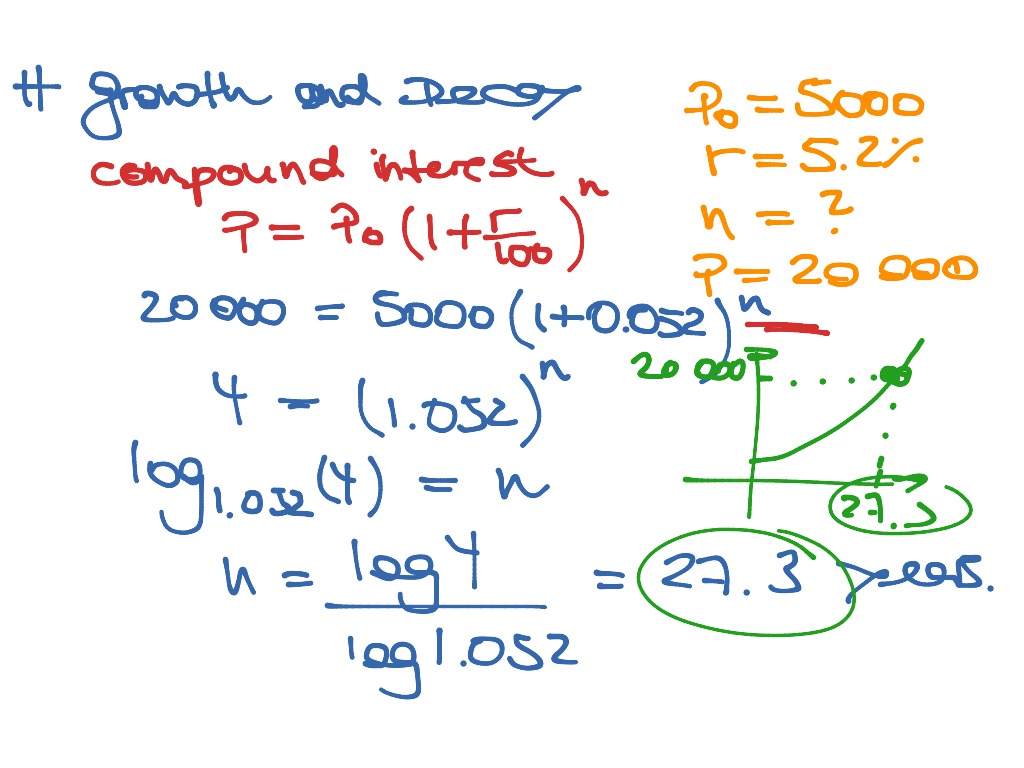 # growth and Decay
compound interest
P = P₀ (1 + r/100)ⁿ
P₀ = 5000
r = 5.2%
n = ?
P = 20 000
20 000 = 5000 (1 + 0.052)ⁿ
4 = (1.052)ⁿ
log₁.₀₅₂ (4) = n
n = log 4 / log 1.052 = 27.3 years.
P
20 000
27.3